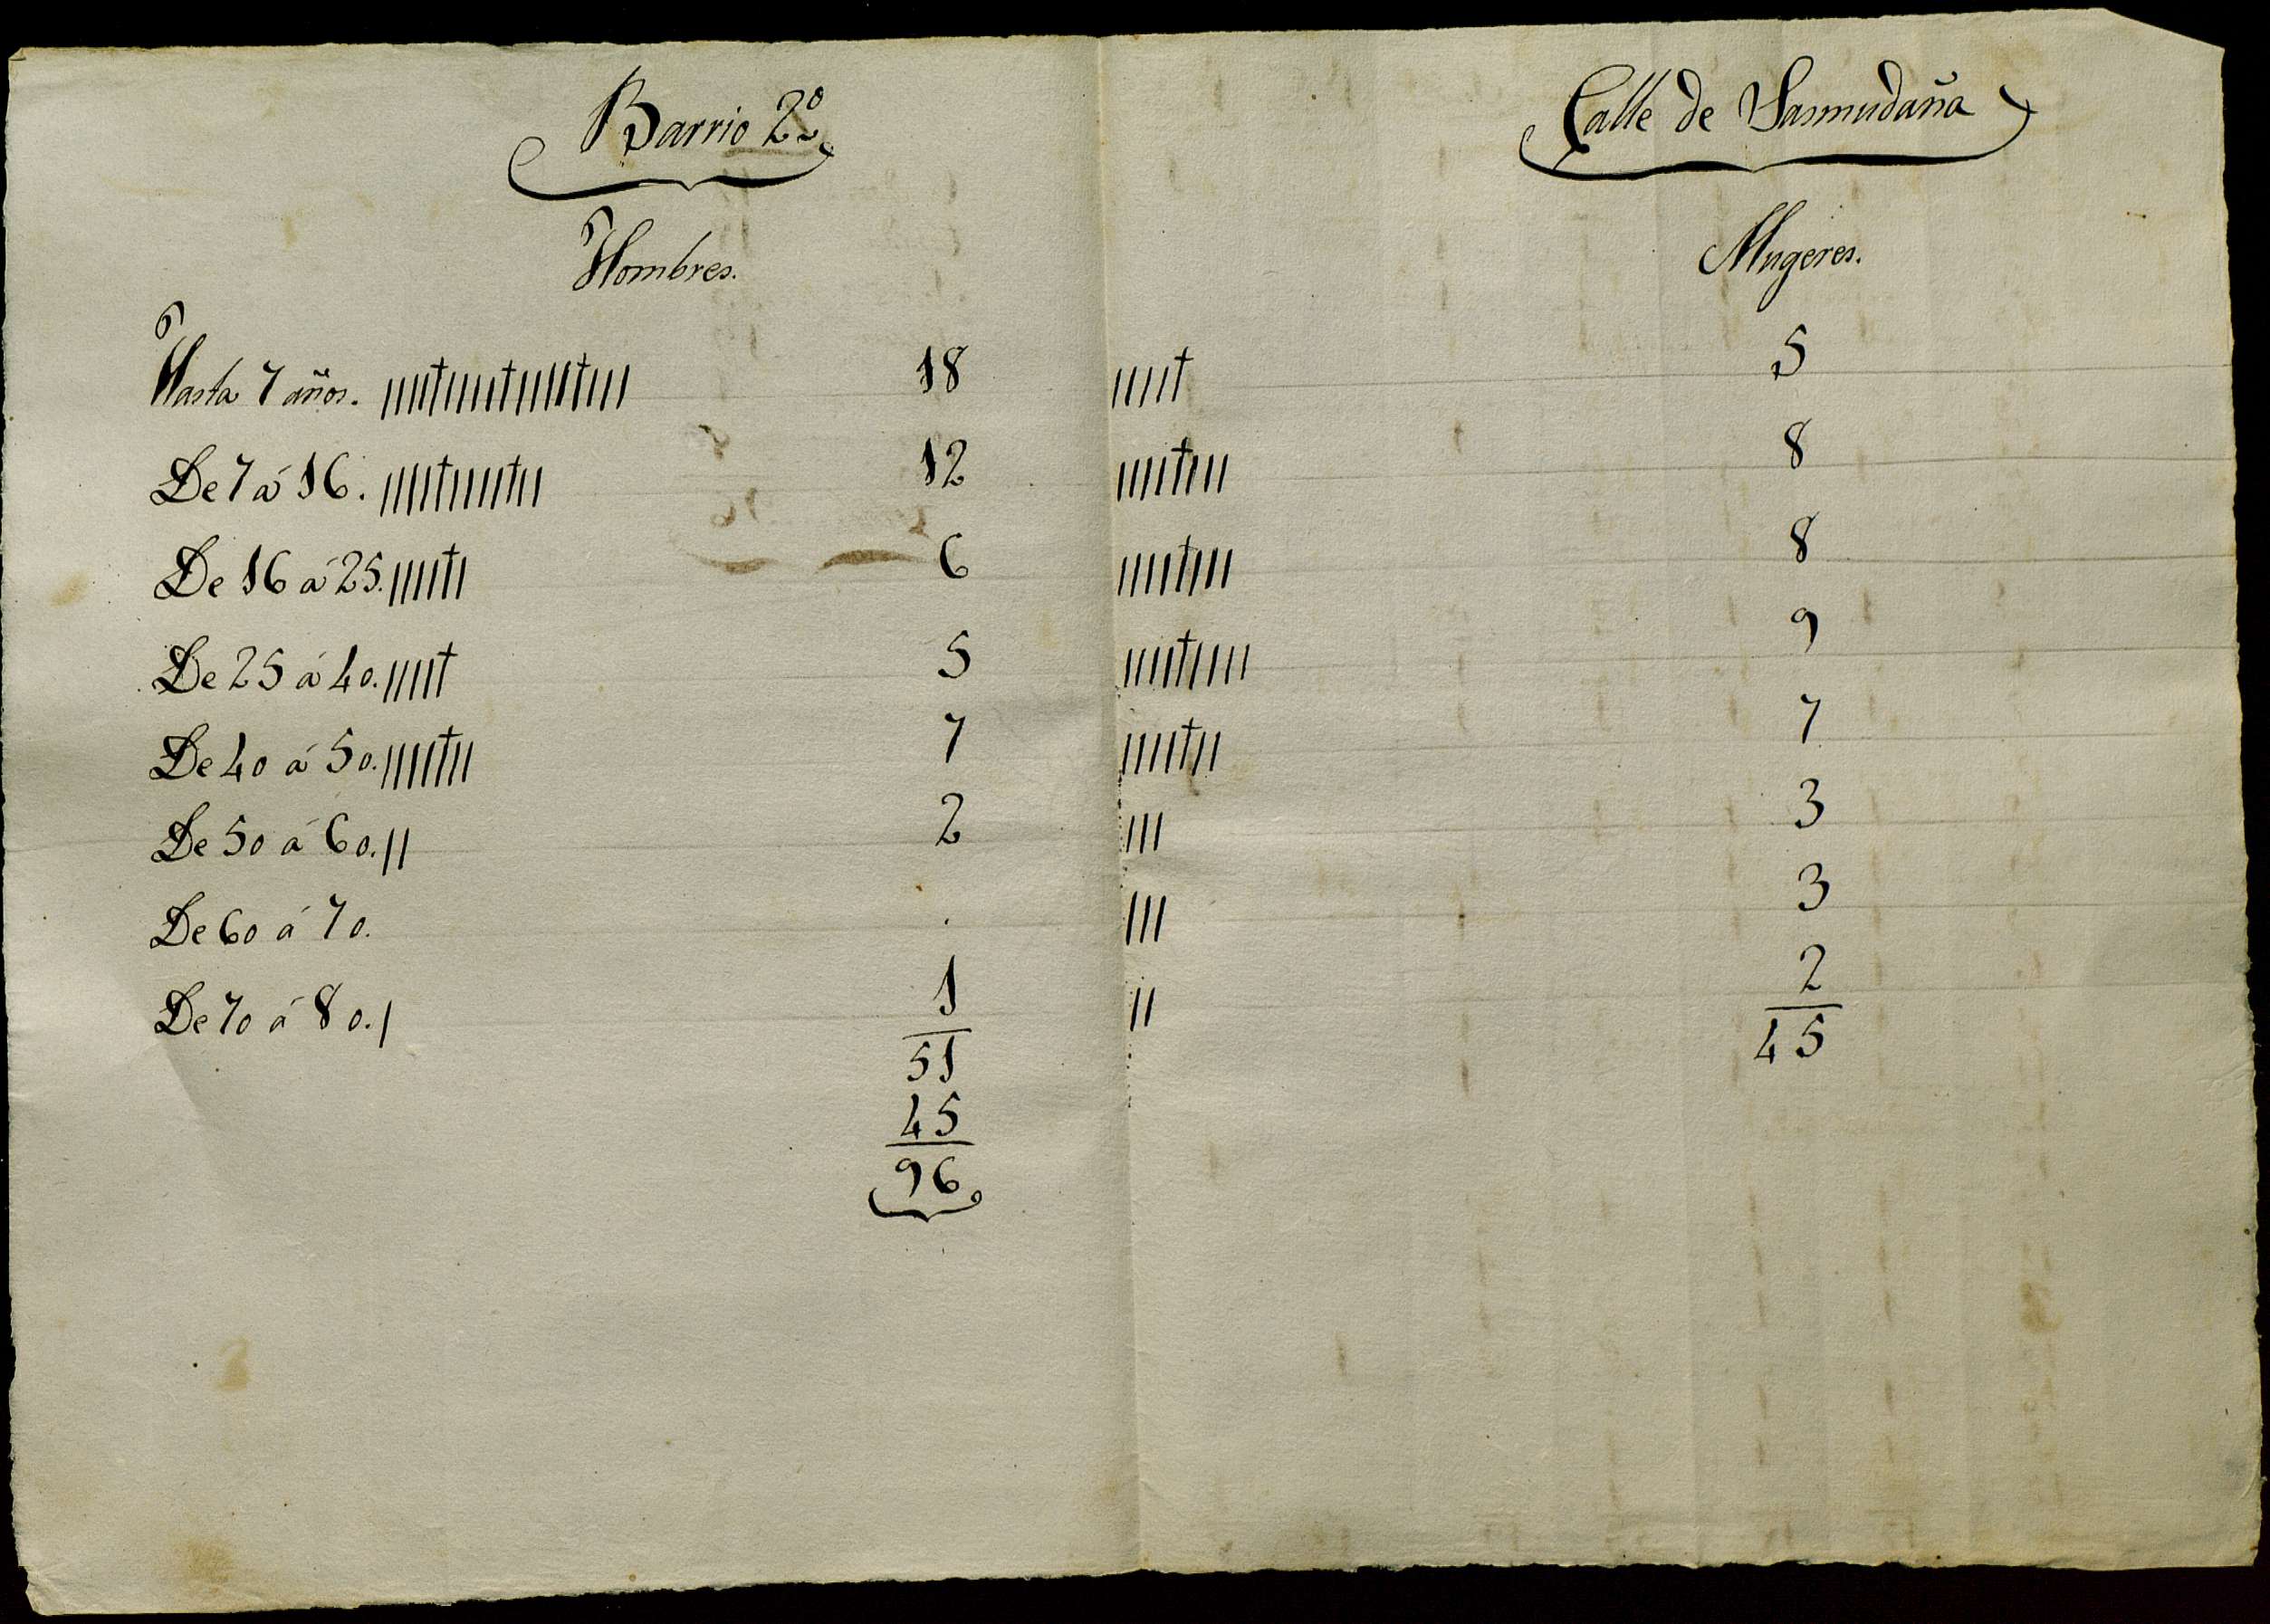 Barrio 2º
Calle de Sasmudaña
Hombres.
Mugeres.
Hasta 7 años. 18 5
De 7 á 16. 12 8
De 16 á 25. 6 8
De 25 á 40. 5 9
De 40 á 50. 7 7
De 50 á 60. 2 3
De 60 á 70. . 3
De 70 á 80. 1 2
51 45
45
96